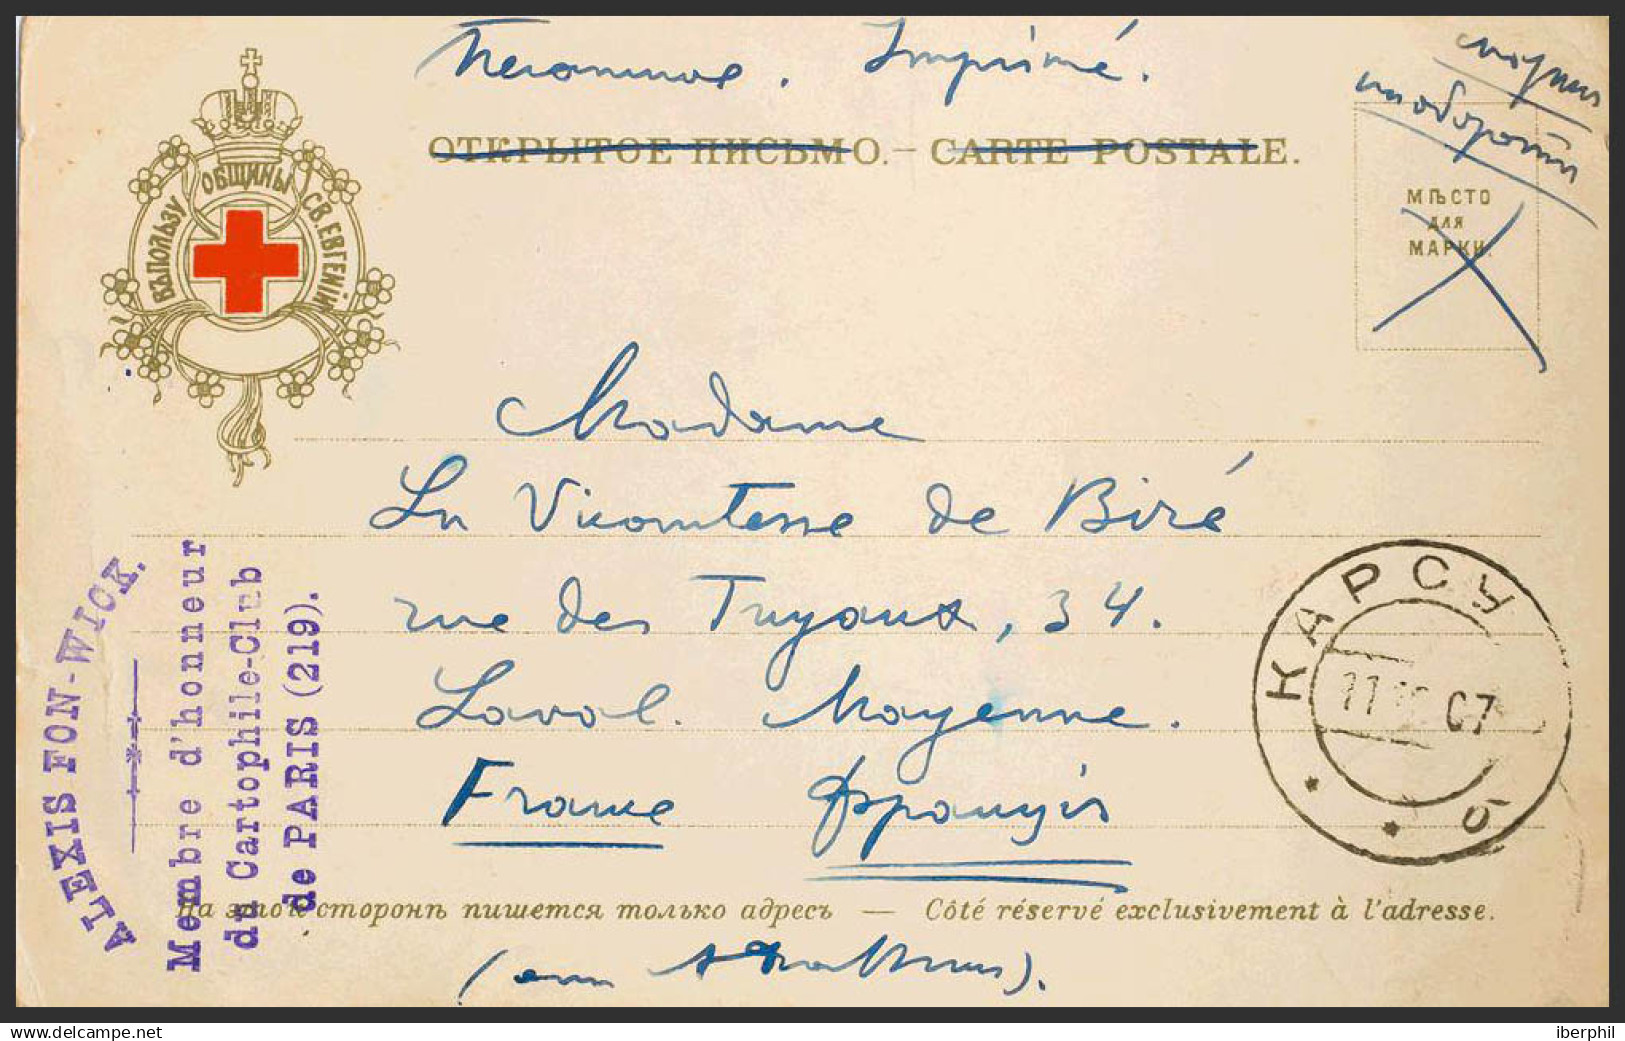 Печатное. Imprimé.
марка
на обороте
ОТКРЫТОЕ ПИСЬМО.— CARTE POSTALE.
ВЪ ПОЛЬЗУ ОБЩИНЫ СВ. ЕВГЕНІИ
МѢСТО
ДЛЯ
МАРКИ.
Madame
La Vicomtesse de Biré
rue des Tuyaux, 34.
Laval. Mayenne.
France Франція
КАРСУ
11 07
б
ALEXIS FON-WICK.
Membre d'honneur
du Cartophile-Club
de PARIS (219).
На этой сторонѣ пишется только адресъ — Côté réservé exclusivement à l'adresse.
iberphil